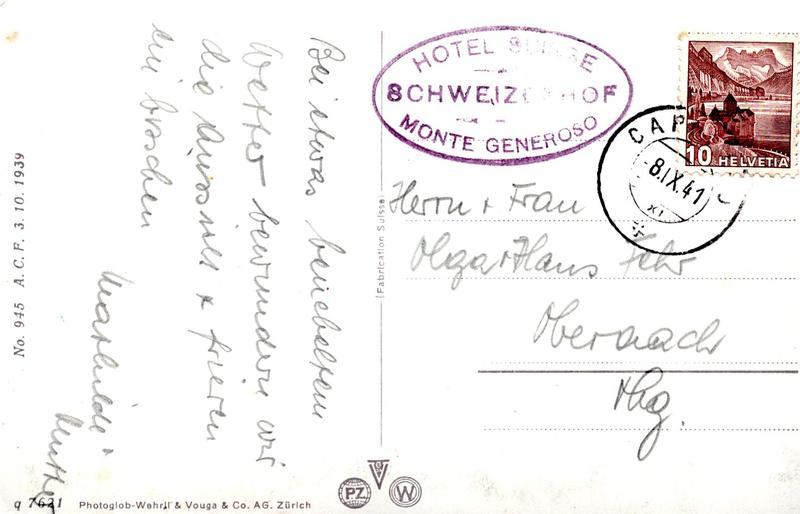 Bei etwas benebeltem
Wetter bewundern wir
die Aussicht + frieren
ein bisschen
Mathilde
No. 945 A. C. F. 3. 10. 1939
q 7621 Photoglob-Wehrli & Vouga & Co. AG. Zürich
(Fabrication Suisse)
PZ
V
W
HOTEL SUISSE
SCHWEIZERHOF
MONTE GENEROSO
10 HELVETIA
CAP
8.IX.41
XI
Herrn + Frau
Olga + Hans Fehr
Oberaach
Thg.